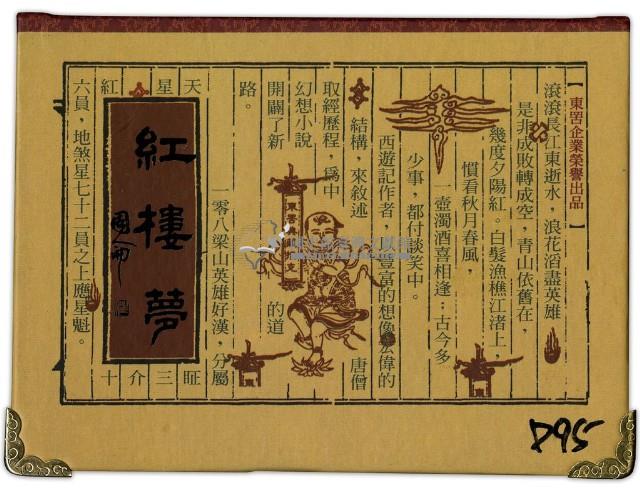 【東罟企業榮譽出品】
滾滾長江東逝水，浪花滔盡英雄
是非成敗轉成空，青山依舊在，
幾度夕陽紅。白髮漁樵江渚上，
慣看秋月春風，
一壺濁酒喜相逢：古今多
少事，都付談笑中。
西遊記作者，豐富的想像宏偉的
結構，來敘述
唐僧
取經歷程，為中
幻想小說
開闢了新
的道
路。
一零八梁山英雄好漢，分屬
天星
紅
十介三証
六員，地煞星七十二員之上應星魁。
紅樓夢
國命
東
東
東
D95